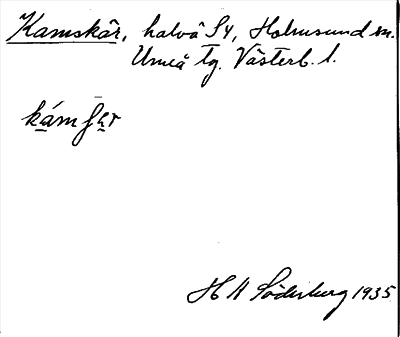 Kamskär, halvö SV, Holmsund sn.
Umeå tg. Västerb. l.
H A Söderburg 1935